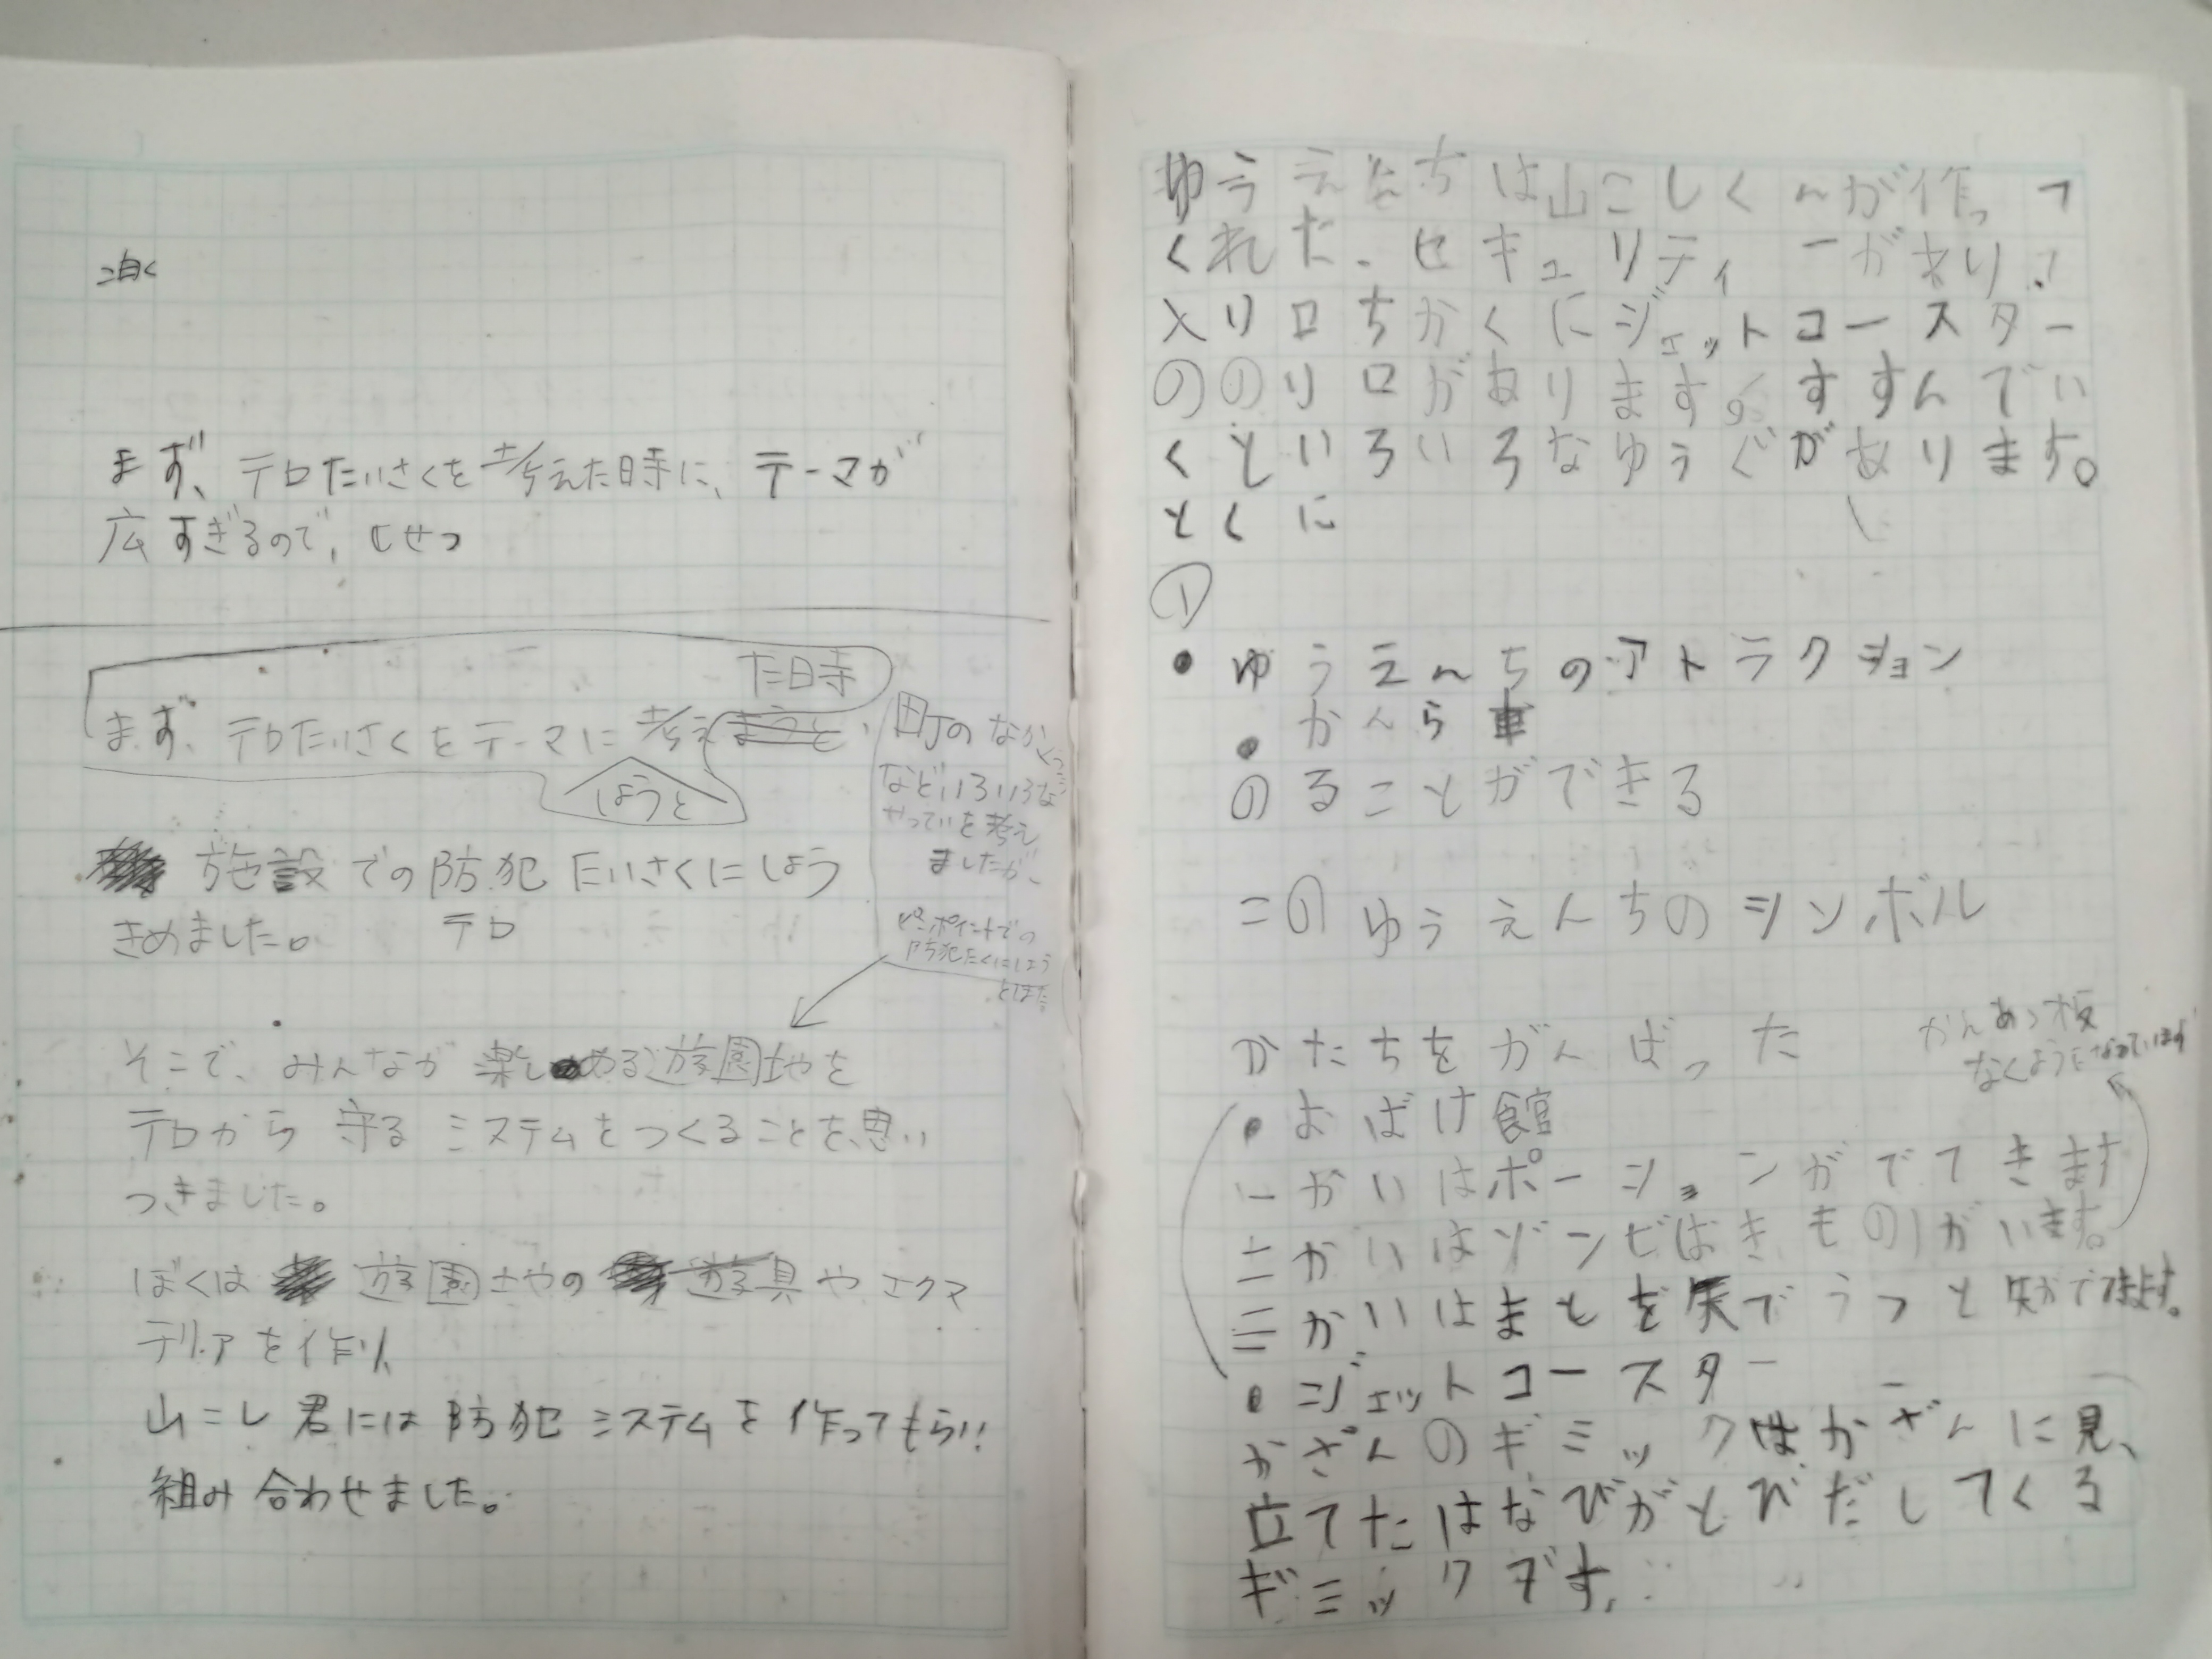 まず、テロたいさくを考えた時に、テーマが
広すぎるので、しせつ
た時
まず、テロたいさくをテーマに考えようと
しようと
町のなか
などいろいろな
やっていを考え
ましたが、
施設での防犯たいさくにしよう
きめました。 テロ
ピンポイントでの
防犯たくにしよう
そこで、みんなが楽しめる遊園地を
テロから守るシステムをつくることを思い
つきました。
ぼくは 遊園地の 遊具やエクマ
テリアを作り、
山こし君には防犯システムを作ってもらい
組み合わせました。
ゆうえんちは山こしくんが作って
くれた、セキュリティーがあり、
入り口ちかくにジェットコースター
ののり口があります。すすんでい
くといろいろなゆうぐがあります。
とくに
①
・ゆうえんちのアトラクション
・かんら車
のることができる
このゆうえんちのシンボル
かたちをがんばった
かんあつ板
なくようになっています
・おばけ館
一かいはポーションがでてきます
二かいはゾンビはきものがいます。
三かいはまとを矢でうつと矢がでてきます。
・ジェットコースター
かざんのギミックはかざんに見
立てたはなびがとびだしてくる
ギミックです。